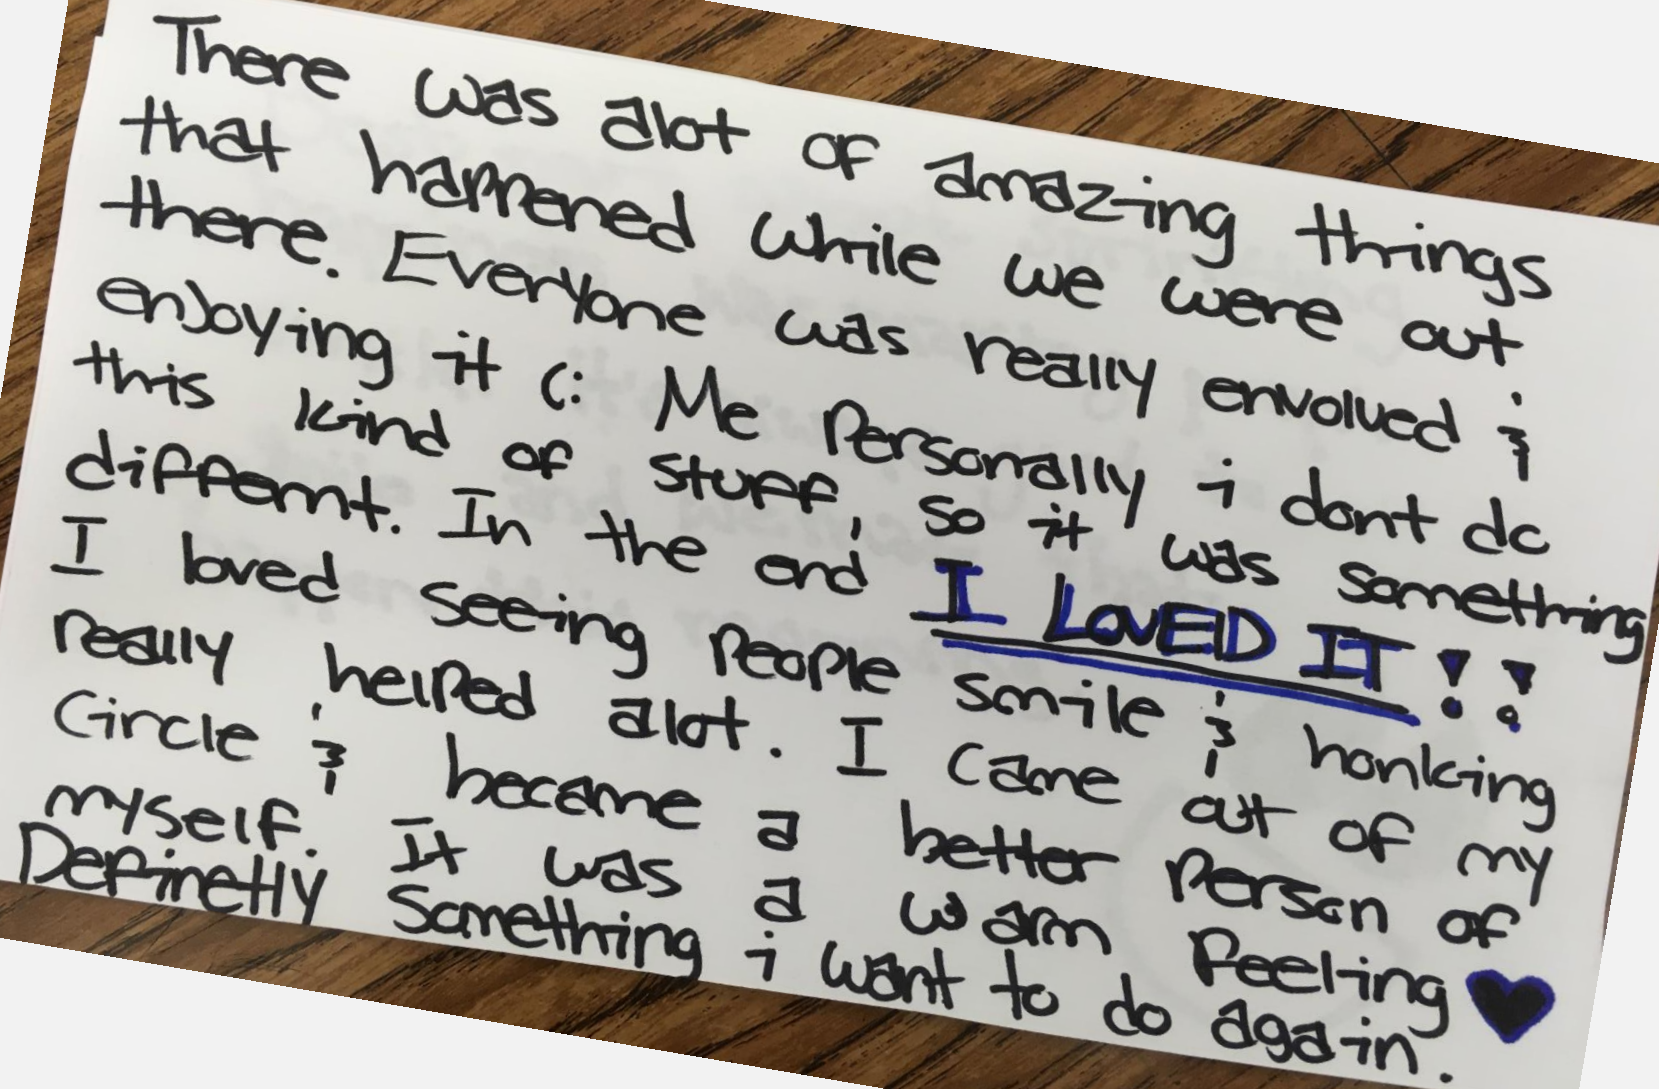 There was alot of amazing things
that happened while we were out
there. Everyone was really envolved &
enjoying it (: Me Personally i dont do
this kind of stuff, so it was something
differnt. In the end I LOVED IT!!
I loved seeing people smile & honking
really helped alot. I came out of my
Circle & became a better Person of
myself. It was a warm feeling ♥
Definetly Something i want to do again.